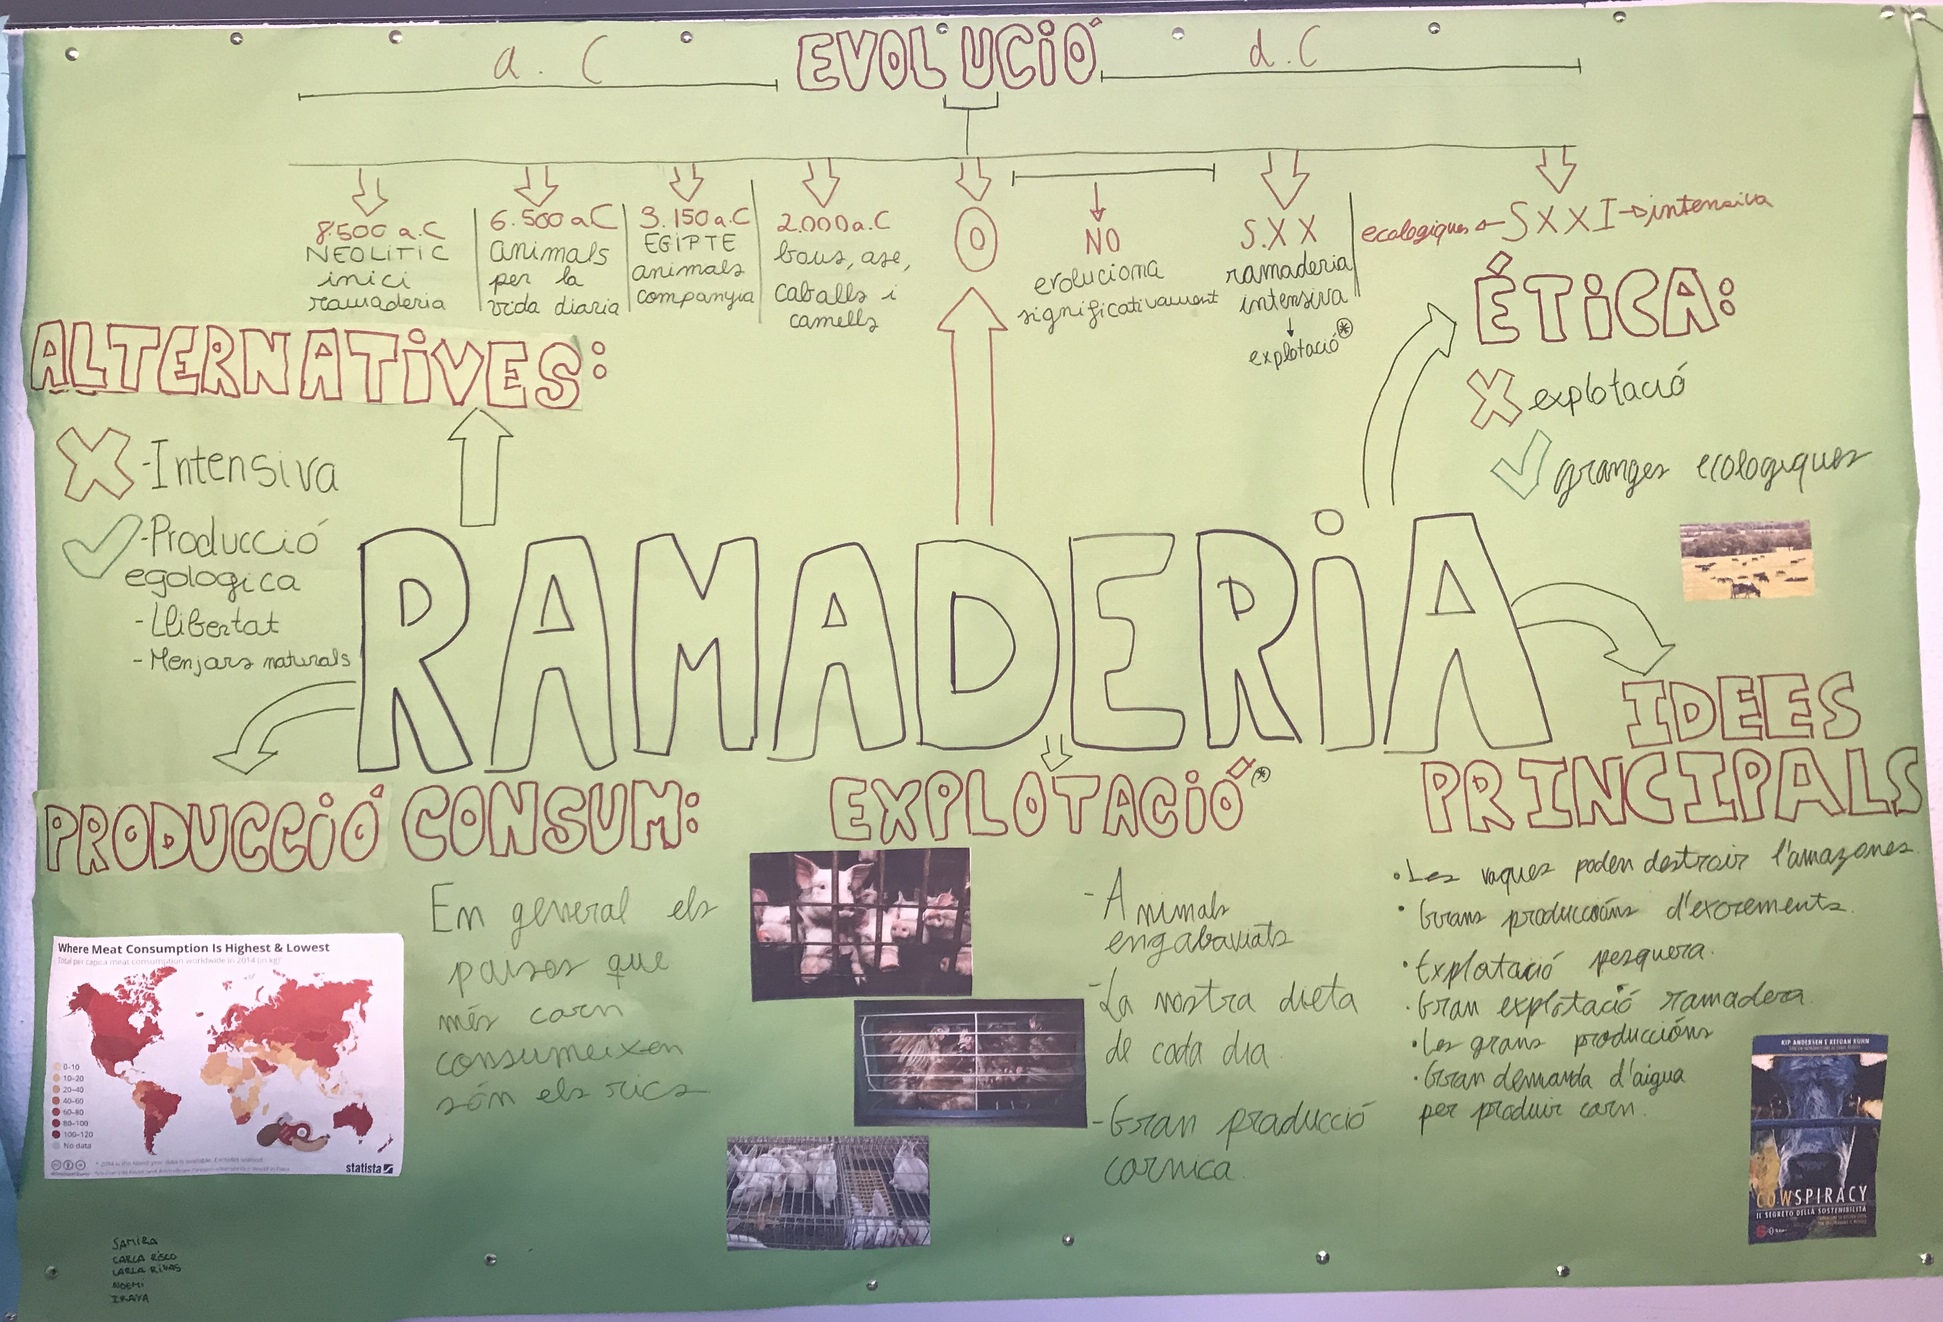 EVOLUCIÓ
a.C
d.C
8.500 a.C
NEOLÍTIC
inici
ramaderia
6.500 a C
animals
per la
vida diaria
3.150 a.C
EGIPTE
animals
companyia
2.000 a.C
bous, ase,
caballs i
camells
0
NO
evoluciona
significativament
S.XX
ramaderia
intensiva
explotació *
ecologiques ← SXXI → intensiva
ALTERNATIVES:
-Intensiva
-Producció
egologica
- Llibertat
- Menjars naturals
ÉTICA:
explotació
granges ecologiques
RAMADERIA
PRODUCCIÓ CONSUM:
En general els
països que
més carn
consumeixen
són els rics
Where Meat Consumption Is Highest & Lowest
Total per capita meat consumption worldwide in 2014 (in kg)*
0-10
10-20
20-40
40-60
60-80
80-100
100-120
No data
statista
EXPLOTACIÓ *
- Animals
engabaviats
-La nostra dieta
de cada dia
-Gran producció
carnica.
IDEES
PRINCIPALS
• Les vaques poden destroir l'amazones.
• Grans produccions d'excrements.
• Explotació pesquera.
• Gran explotació ramadera.
• Les grans produccións
• Gran demanda d'aigua
per produir carn.
KIP ANDERSEN E KEEGAN KUHN
COWSPIRACY
IL SEGRETO DELLA SOSTENIBILITÀ
SAMIRA
CARLA RISCO
CARLA RIVAS
NOEMI